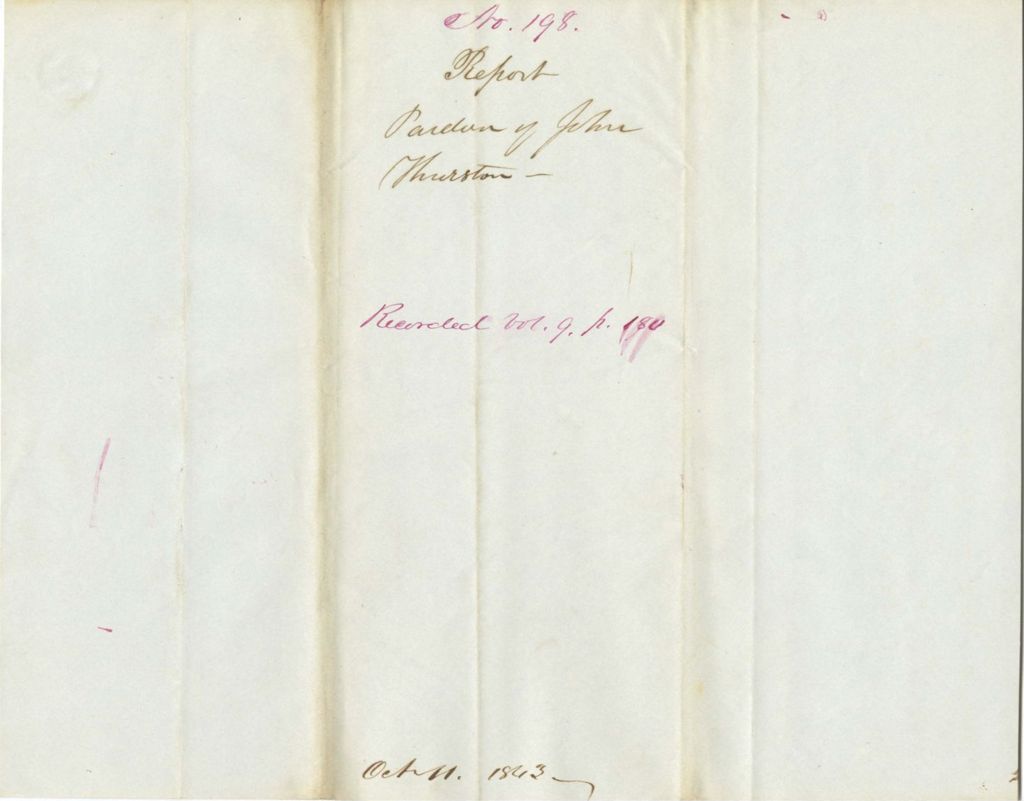 No. 198.
Report
Pardon of John
Thurston –
Recorded Vol. 9. p. 180
Oct 11. 1843